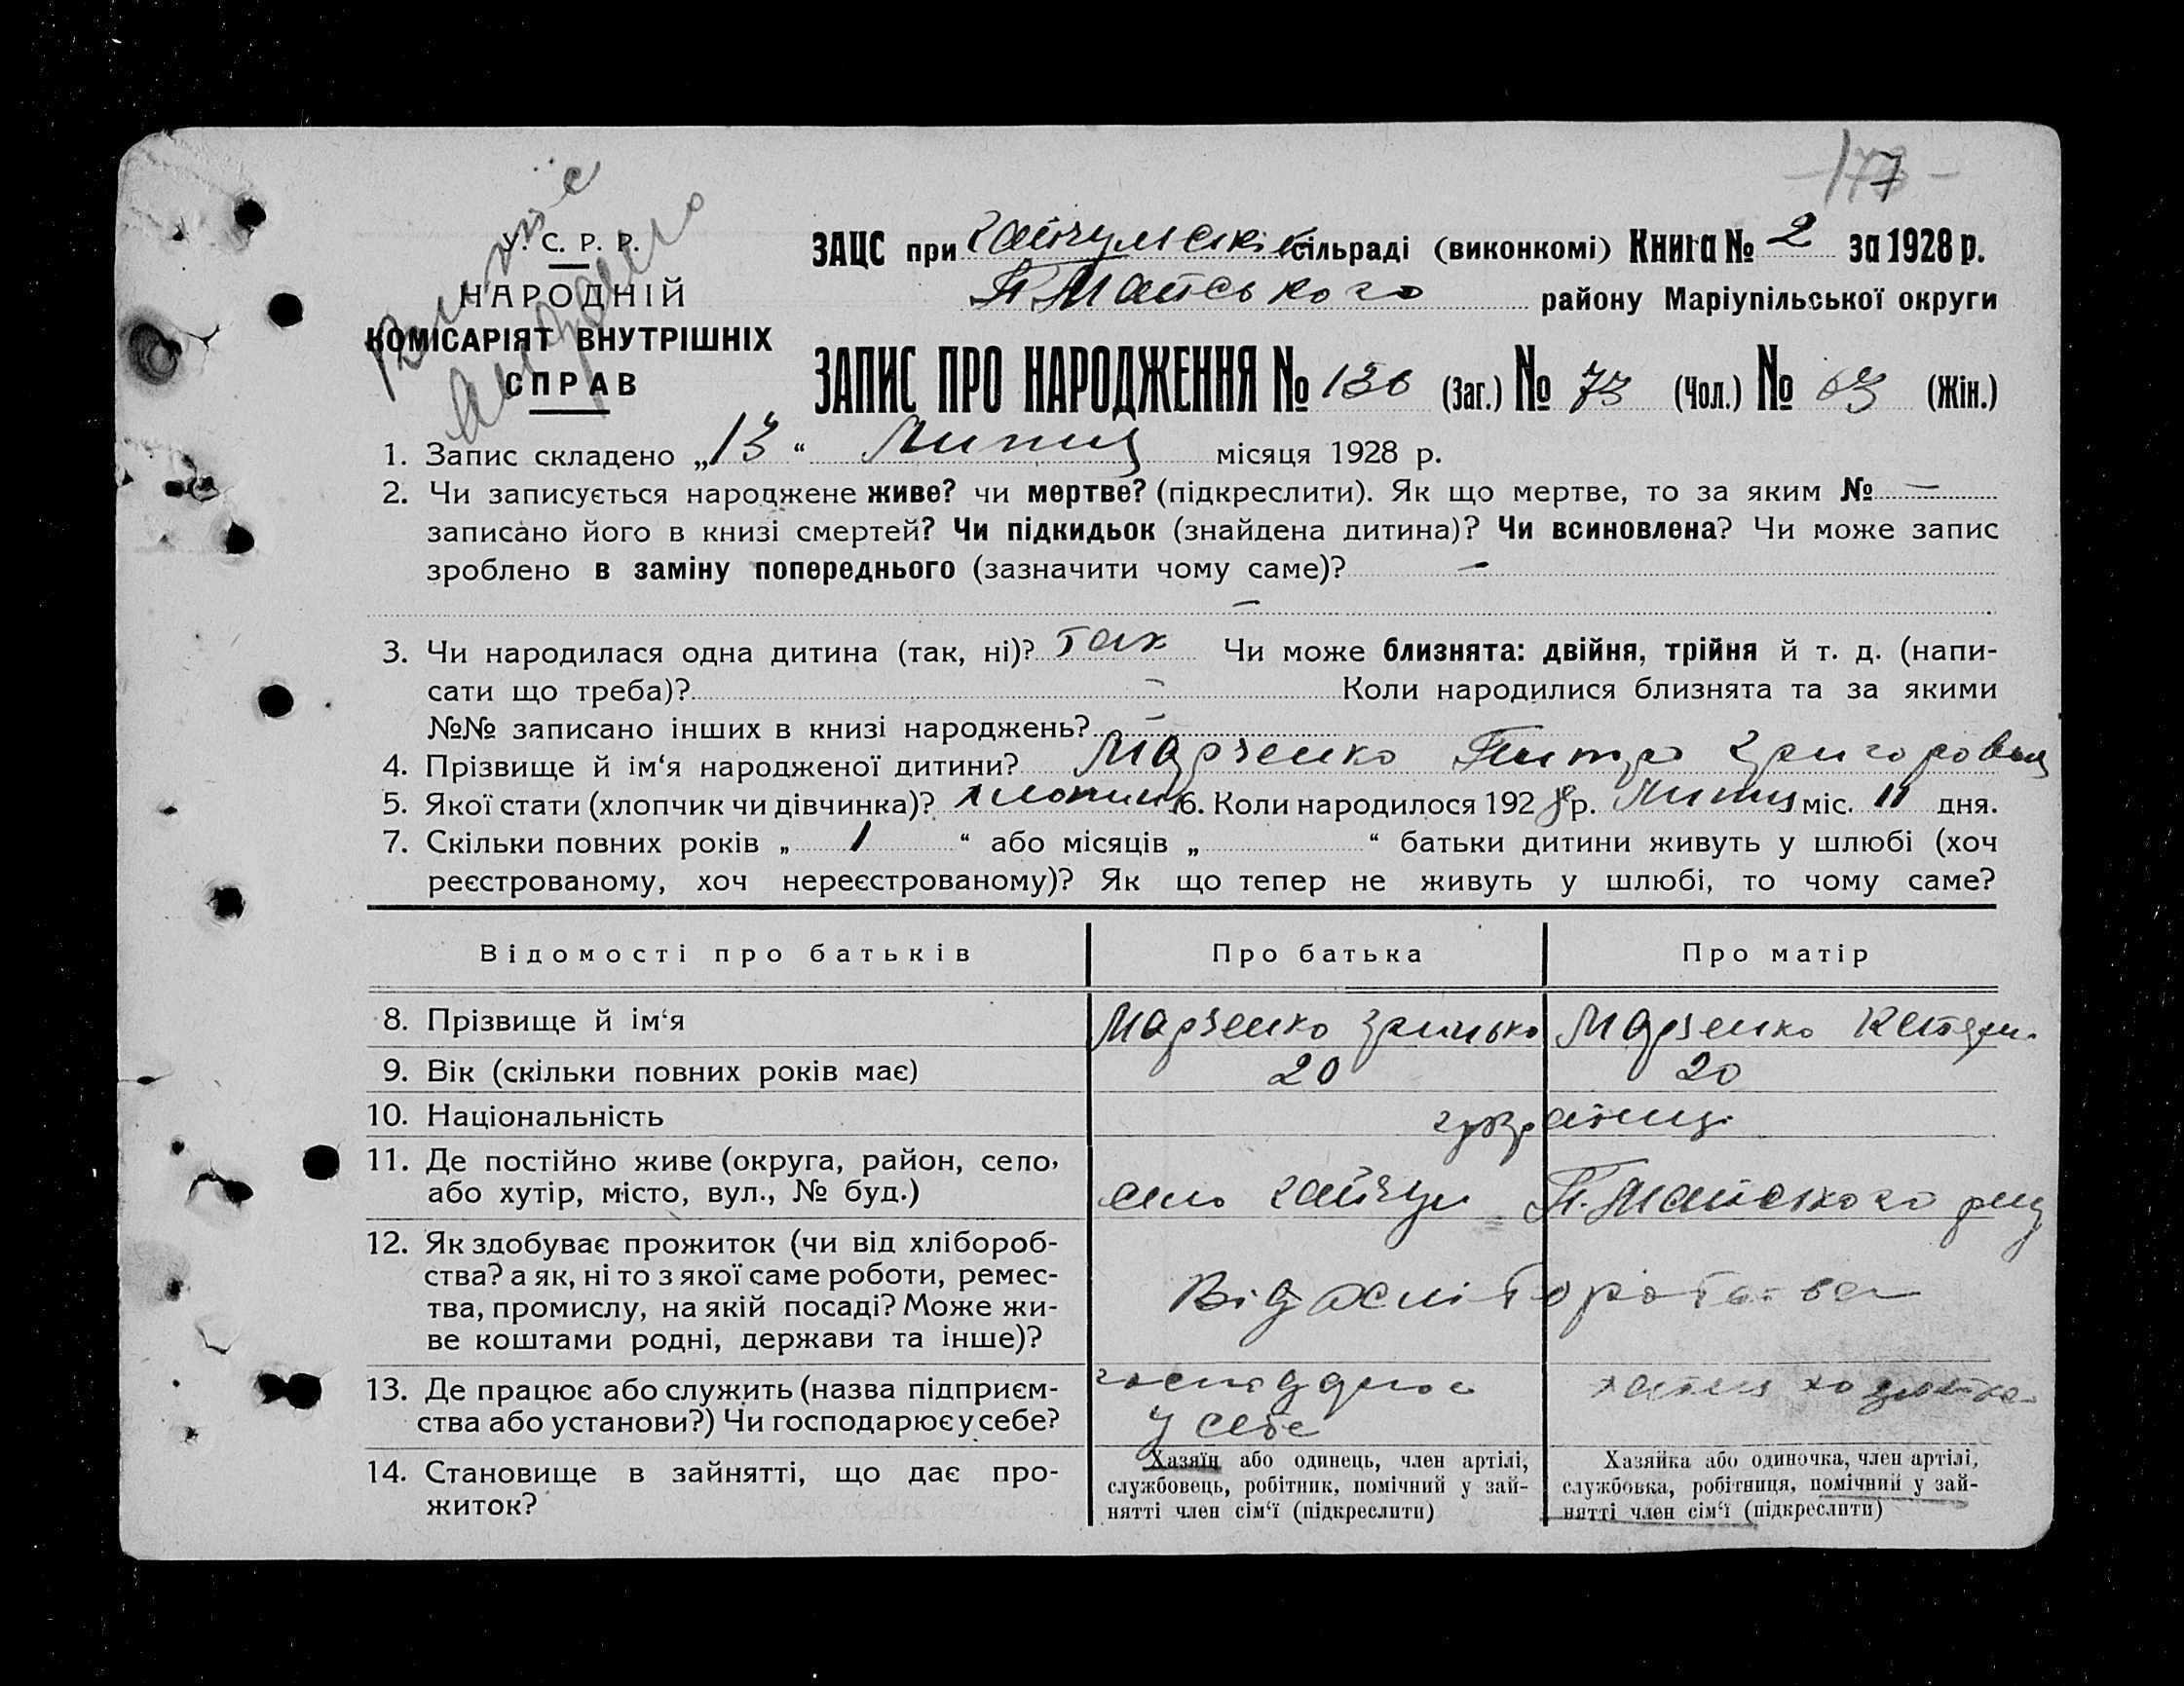 177
У. С. Р. Р.
НАРОДНІЙ
КОМІСАРІЯТ ВНУТРІШНІХ
СПРАВ
ЗАЦС при Гайчумській сільраді (виконкомі) Книга № 2 за 1928 р.
району Маріупільської округи
ЗАПИС ПРО НАРОДЖЕННЯ № 136 (Заг.) № 73 (Чол.) № 63 (Жін.)
1. Запис складено „13“ Липня місяця 1928 р.
2. Чи записується народжене живе? чи мертве? (підкреслити). Як що мертве, то за яким № —
записано його в книзі смертей? Чи підкидьок (знайдена дитина)? Чи всиновлена? Чи може запис
зроблено в заміну попереднього (зазначити чому саме)? —
—
3. Чи народилася одна дитина (так, ні)? Так Чи може близнята: двійня, трійня й т. д. (напи-
сати що треба)? — Коли народилися близнята та за якими
№№ записано інших в книзі народжень? —
4. Прізвище й ім‘я народженої дитини? Марченко Питро Григорович
5. Якої стати (хлопчик чи дівчинка)? хлопчик 6. Коли народилося 1928 р. Липня міс. 11 дня.
7. Скільки повних років „ 1 “ або місяців „ “ батьки дитини живуть у шлюбі (хоч
реєстрованому, хоч нереєстрованому)? Як що тепер не живуть у шлюбі, то чому саме?
Відомості про батьків Про батька Про матір
8. Прізвище й ім‘я Марченко Гринько Марченко
9. Вік (скільки повних років має) 20 20
10. Національність українці
11. Де постійно живе (округа, район, село,
або хутір, місто, вул., № буд.) село Гайчул
12. Як здобуває прожиток (чи від хлібороб-
ства? а як, ні то з якої саме роботи, ремес-
тва, промислу, на якій посаді? Може жи-
ве коштами родні, держави та інше)? Від хліборобства
13. Де працює або служить (назва підприєм-
ства або установи?) Чи господарює у себе? господарює у себе хатня
14. Становище в зайнятті, що дає про-
житок?
Хазяїн або одинець, член артілі,
службовець, робітник, помічний у зай-
нятті член сім‘ї (підкреслити)
Хазяйка або одиночка, член артілі,
службовка, робітниця, помічний у зай-
нятті член сім‘ї (підкреслити)